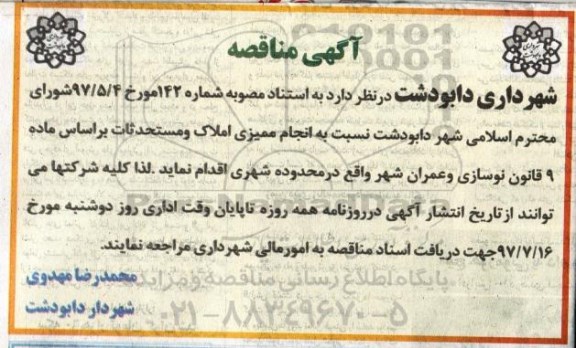 آگهی مناقصه
شهرداری دابودشت درنظر دارد به استناد مصوبه شماره ۱۴۲مورخ ۹۷/۵/۴شورای
محترم اسلامی شهر دابودشت نسبت به انجام ممیزی املاک ومستحدثات براساس ماده
۹ قانون نوسازی وعمران شهر واقع درمحدوده شهری اقدام نماید .لذا کلیه شرکتها می
توانند ازتاریخ انتشار آگهی درروزنامه همه روزه تاپایان وقت اداری روز دوشنبه مورخ
۹۷/۷/۱۶جهت دریافت اسناد مناقصه به امورمالی شهرداری مراجعه نمایند.
محمدرضا مهدوی
شهردار دابودشت
پایگاه اطلاع رسانی مناقصه و مزایده
۰۲۱-۸۸۳۴۹۶۷۰-۵